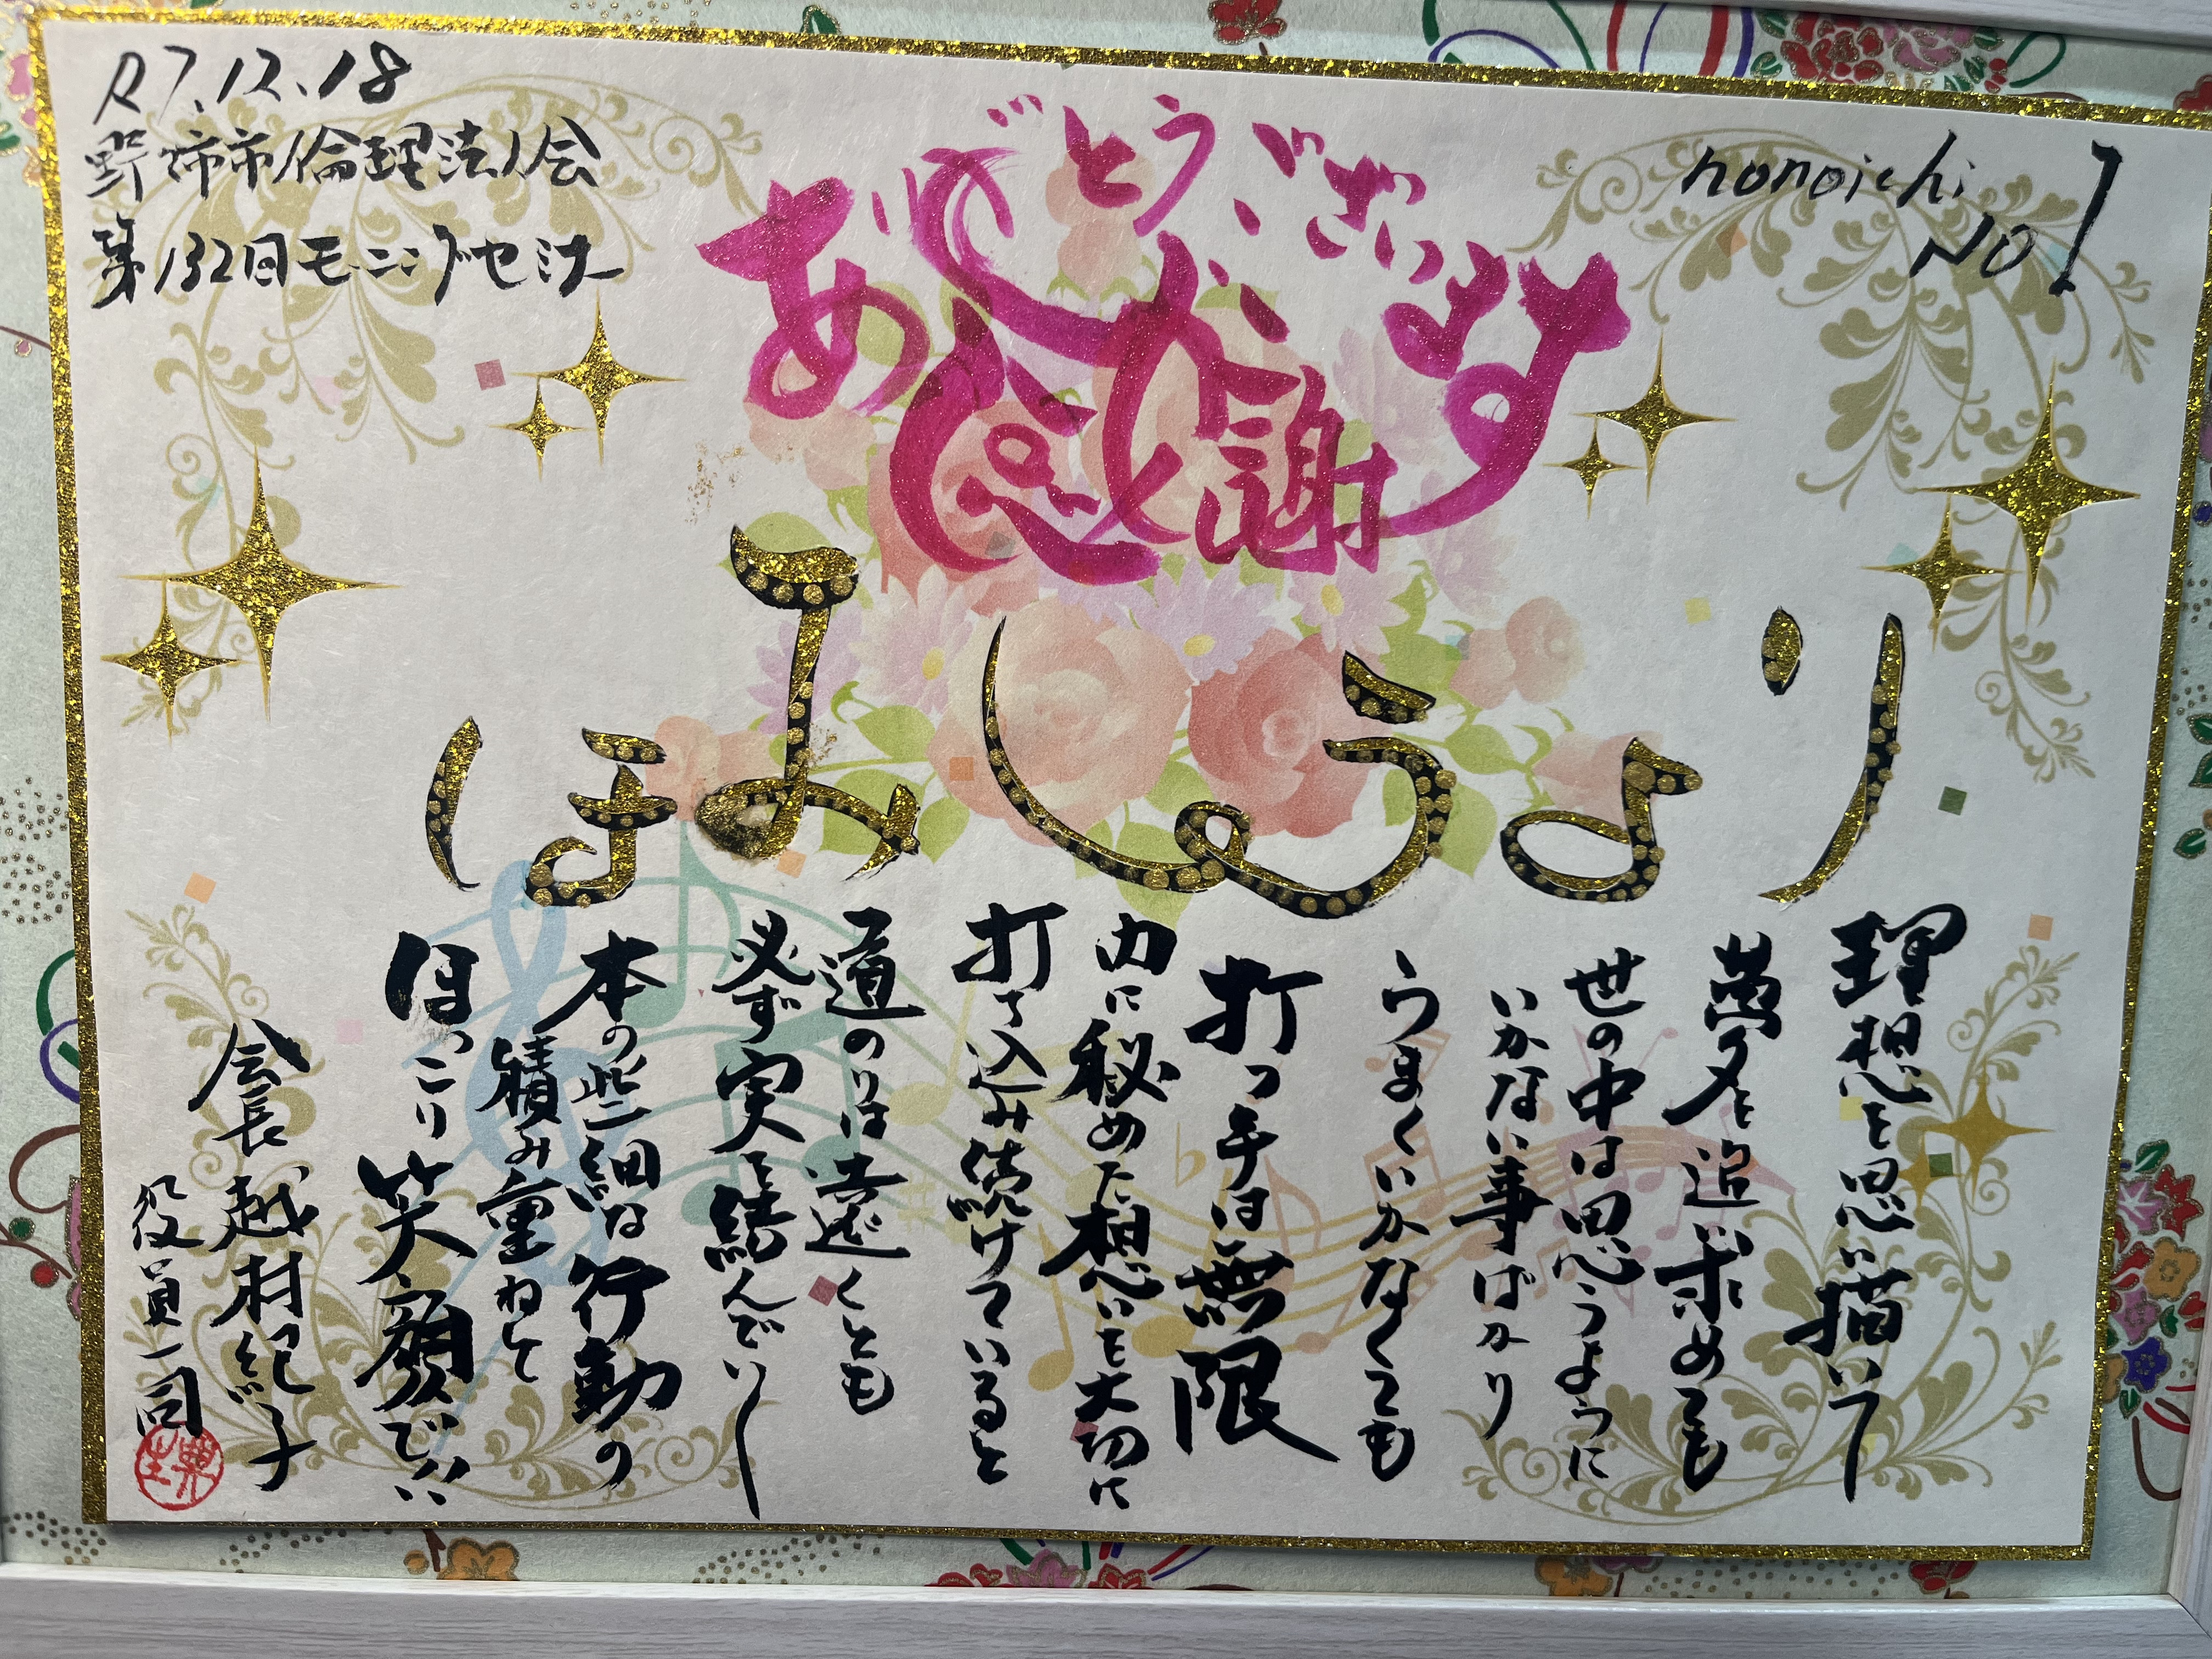 R7.12.18
野々市市倫理法人会
第132回モーニングセミナー
nonoichi
NO1
ありがとうございます
感謝
理想を思い描いて
夢を追い求めても
世の中は思うように
いかない事ばかり
うまくいかなくても
打つ手は無限
内に秘めた想いを大切に
打ち込み続けていると
道のりは遠くとも
必ず実を結んでいく
本の些細な行動の
積み重ねで
ほっこり笑顔でいい
会長 越村紀子
役員一同